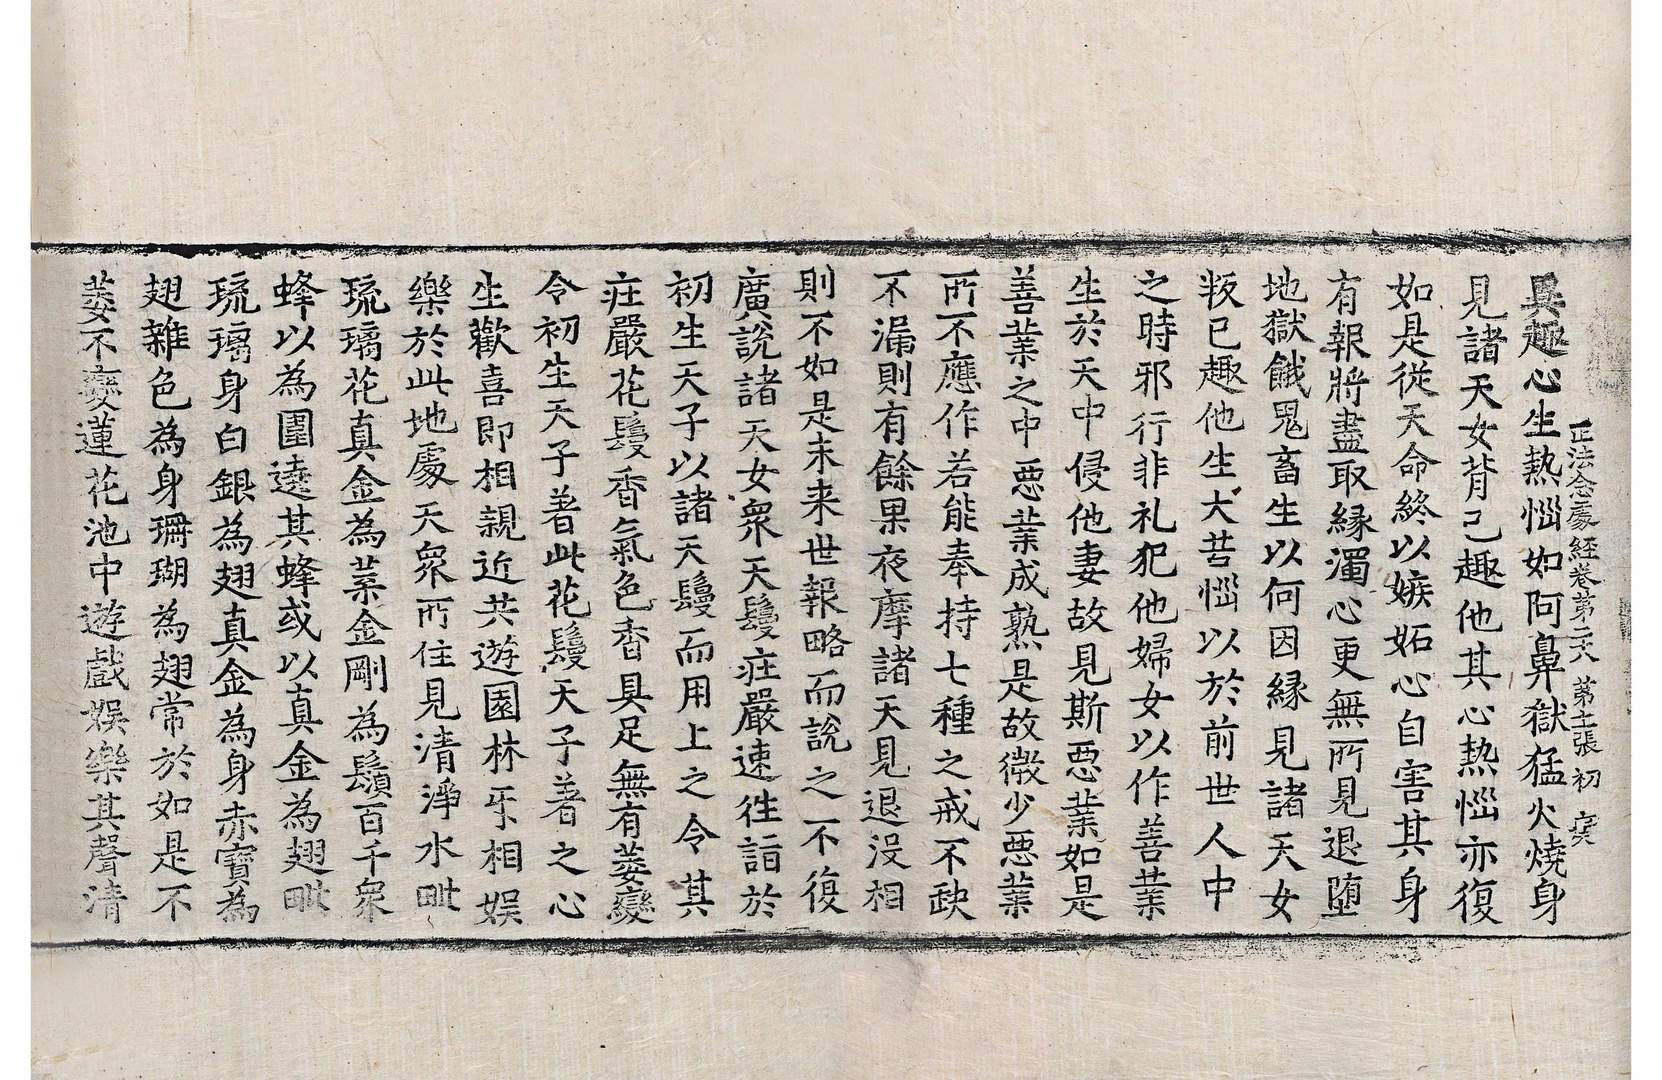 正法念處經卷第二六　第十張　初　㐮
異趣心生熱惱如阿鼻獄猛火燒身
見諸天女背己趣他其心熱惱亦復
如是從天命終以嫉妬心自害其身
有報將盡取縁濁心更無所見退堕
地獄餓鬼畜生以何因縁見諸天女
叛已趣他生大苦惱以於前世人中
之時邪行非礼犯他婦女以作善業
生於天中侵他妻故見斯惡業如是
善業之中惡業成熟是故微少惡業
所不應作若能奉持七種之戒不缺
不漏則有餘果夜摩諸天見退没相
則不如是未来世報略而說之不復
廣說諸天女衆天鬘莊嚴速往詣於
初生天子以諸天鬘而用上之令其
莊嚴花鬘香氣色香具足無有萎變
令初生天子著此花鬘天子著之心
生歡喜即相親近共遊園林𤓰相娱
樂於此地處天衆所住見清淨水毗
琉璃花真金為葉金剛為鬚百千衆
蜂以為圍遶其蜂或以真金為翅毗
琉璃身白銀為翅真金為身赤寶為
翅雜色為身珊瑚為翅常於如是不
萎不變蓮花池中遊戲娱樂其聲清